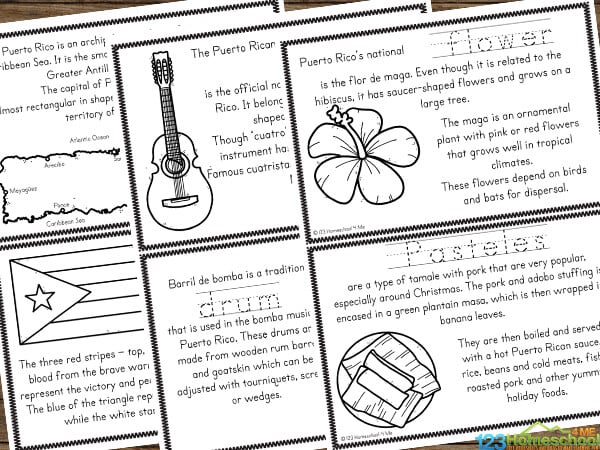 Puerto Rico is an archip
ribbean Sea. It is the sma
Greater Antill
The capital of P
lmost rectangular in shape
territory of
Atlantic Ocean
Arecibo
Mayagüez
Ponce
Caribbean Sea
The Puerto Rican
is the official no
Rico. It belong
Though 'cuatro'
instrument ha
Famous cuatrista
Puerto Rico's national flower
is the flor de maga. Even though it is related to the
hibiscus, it has saucer-shaped flowers and grows on a
large tree.
The maga is an ornamental
plant with pink or red flowers
that grows well in tropical
climates.
These flowers depend on birds
and bats for dispersal.
©123 Homeschool 4 Me
The three red stripes – top,
blood from the brave warr
represent the victory and pe
The blue of the triangle rep
while the white star
Barril de bomba is a tradition
drum
that is used in the bomba music
Puerto Rico. These drums ar
made from wooden rum barre
and goatskin which can be
adjusted with tourniquets, scre
or wedges.
Pasteles
are a type of tamale with pork that are very popular,
especially around Christmas. The pork and adobo stuffing is
encased in a green plantain masa, which is then wrapped i
banana leaves.
They are then boiled and served
with a hot Puerto Rican sauce,
rice, beans and cold meats, fish
roasted pork and other yumm
holiday foods.
© 123 Homeschool 4 Me
123 Homeschool 4 ME